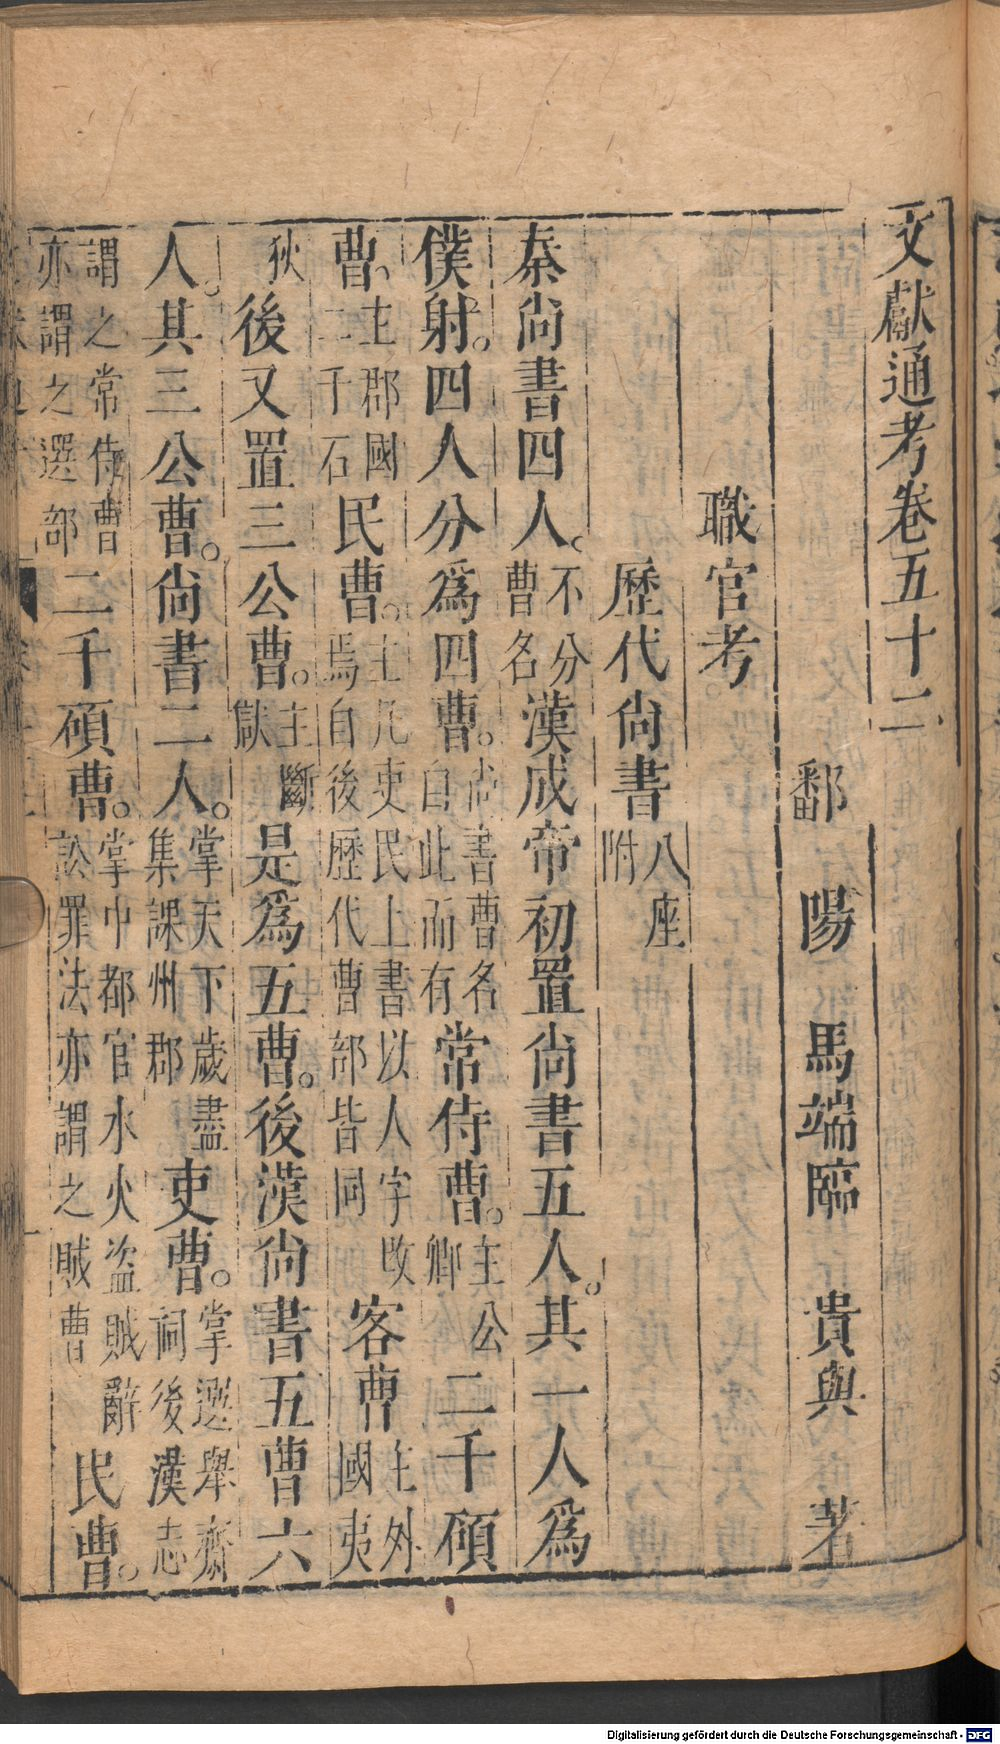 文獻通考卷五十二
鄱陽馬端臨貴與著
職官考
歷代尚書八座附
秦尚書四人不分曹名漢成帝初置尚書五人其一人爲
僕射四人分爲四曹尚書曹名自此而有常侍曹主公卿二千碩
曹主郡國二千石民曹主凡吏民上書以人字改焉自後歷代曹部皆同客曹主外國夷
狄後又置三公曹主斷獄是爲五曹後漢尚書五曹六
人其三公曹尚書二人掌天下歲盡集課州郡吏曹掌選舉齋祠後漢志
謂之常侍曹亦謂之選部二千碩曹掌中都官水火盜賊辭訟罪法亦謂之賊曹民曹
Digitalisierung gefördert durch die Deutsche Forschungsgemeinschaft - DFG